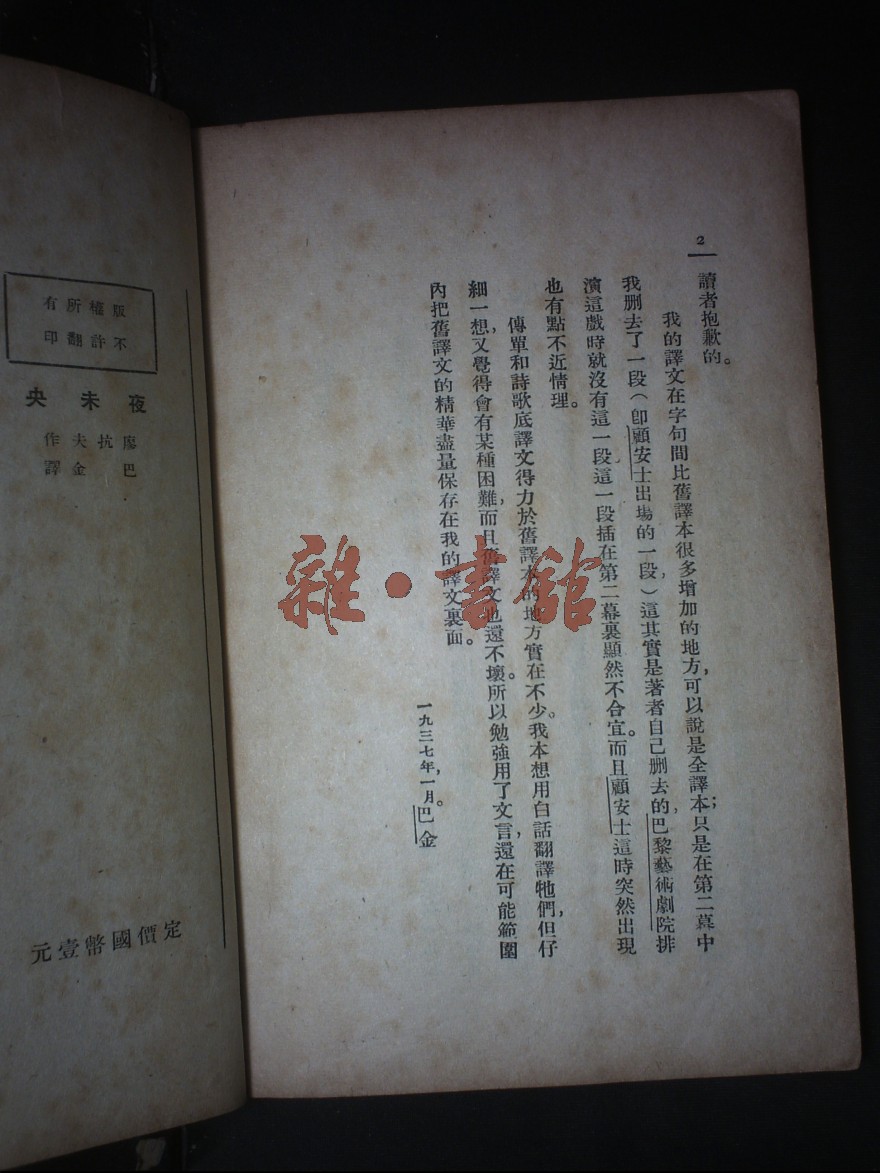 2
讀者抱歉的。
我的譯文在字句間比舊譯本很多增加的地方，可以說是全譯本；只是在第二幕中
我刪去了一段（卽顧安士出場的一段，）這其實是著者自己刪去的，巴黎藝術劇院排
演這戲時就沒有這一段。這一段插在第二幕裏顯然不合宜。而且顧安士這時突然出現
也有點不近情理。
傳單和詩歌底譯文得力於舊譯本的地方實在不少。我本想用白話翻譯牠們，但仔
細一想，又覺得會有某種困難，而且舊譯文也還不壞。所以勉強用了文言，還在可能範圍
內把舊譯文的精華盡量保存在我的譯文裏面。
一九三七年，一月。巴金
版權所有
不許翻印
夜未央
廖抗夫作
巴金譯
定價國幣壹元
雜·書館